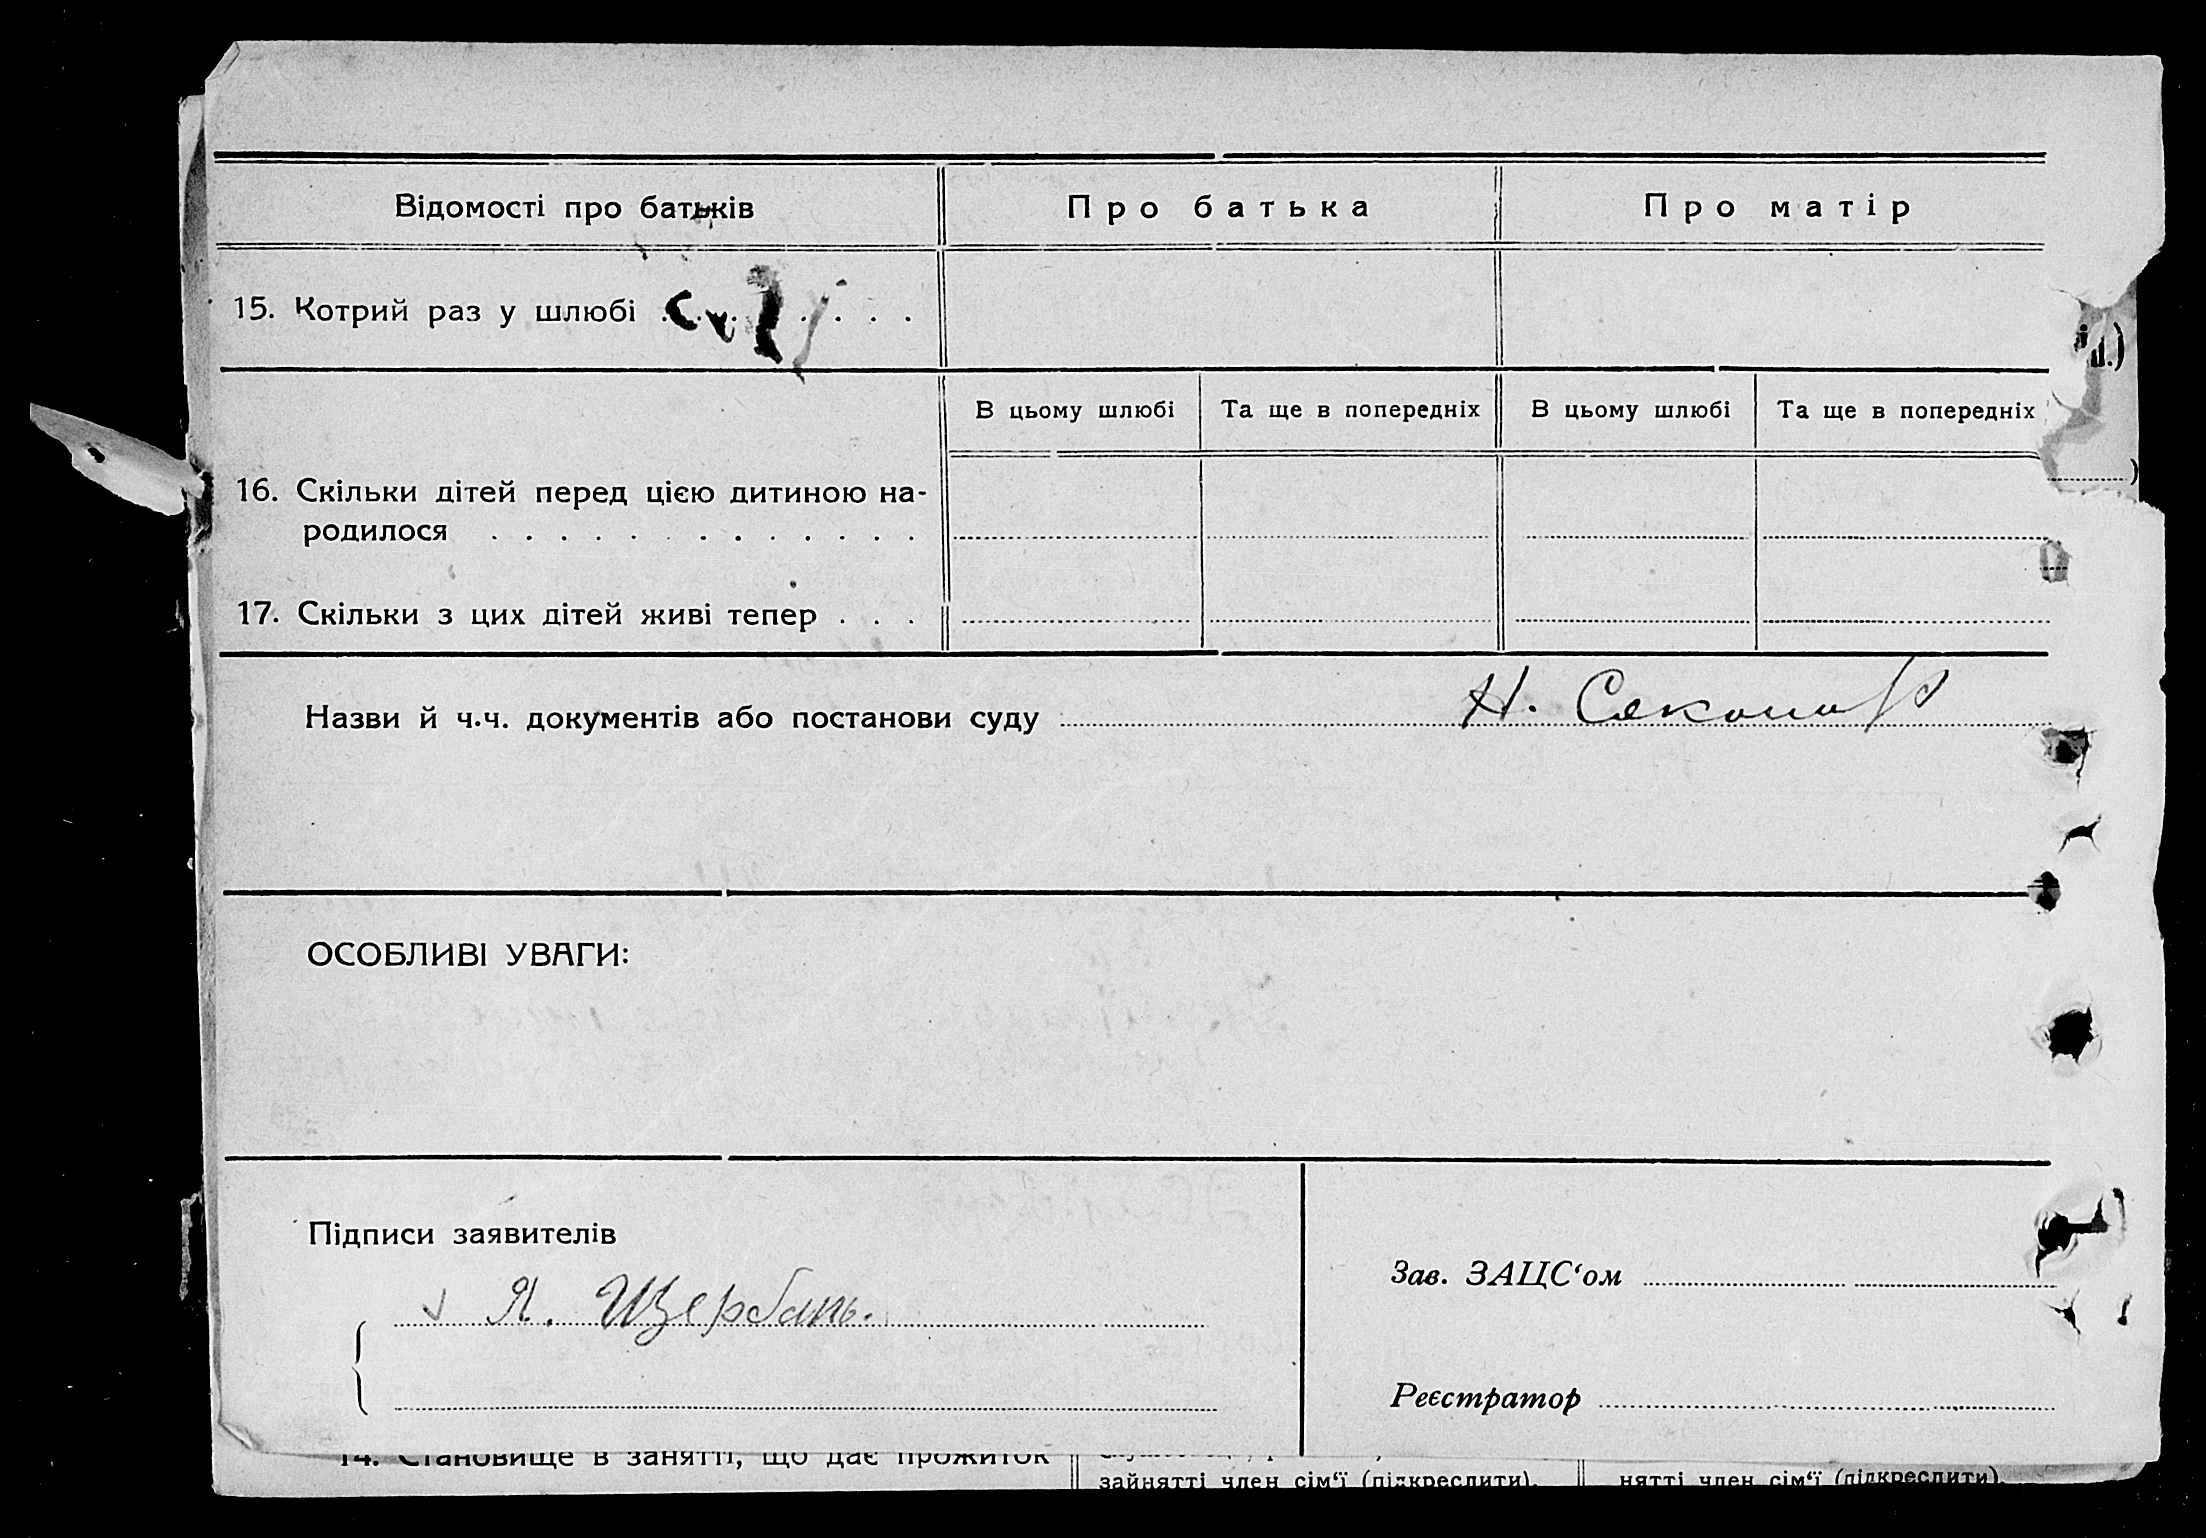 Відомості про батьків
Про батька
Про матір
15. Котрий раз у шлюбі . . . . . . . .
В цьому шлюбі
Та ще в попередніх
В цьому шлюбі
Та ще в попередніх
16. Скільки дітей перед цією дитиною на-
родилося . . . . . . . . . . . . .
17. Скільки з цих дітей живі тепер . . .
Назви й ч.ч. документів або постанови суду Н.
ОСОБЛИВІ УВАГИ:
Підписи заявителів
Я. Щербань.
Зав. ЗАЦС‘ом
Реєстратор
14. Становище в занятті, що дає прожиток
зайнятті член сім‘ї (підкреслити).
нятті член сім‘ї (підкреслити).